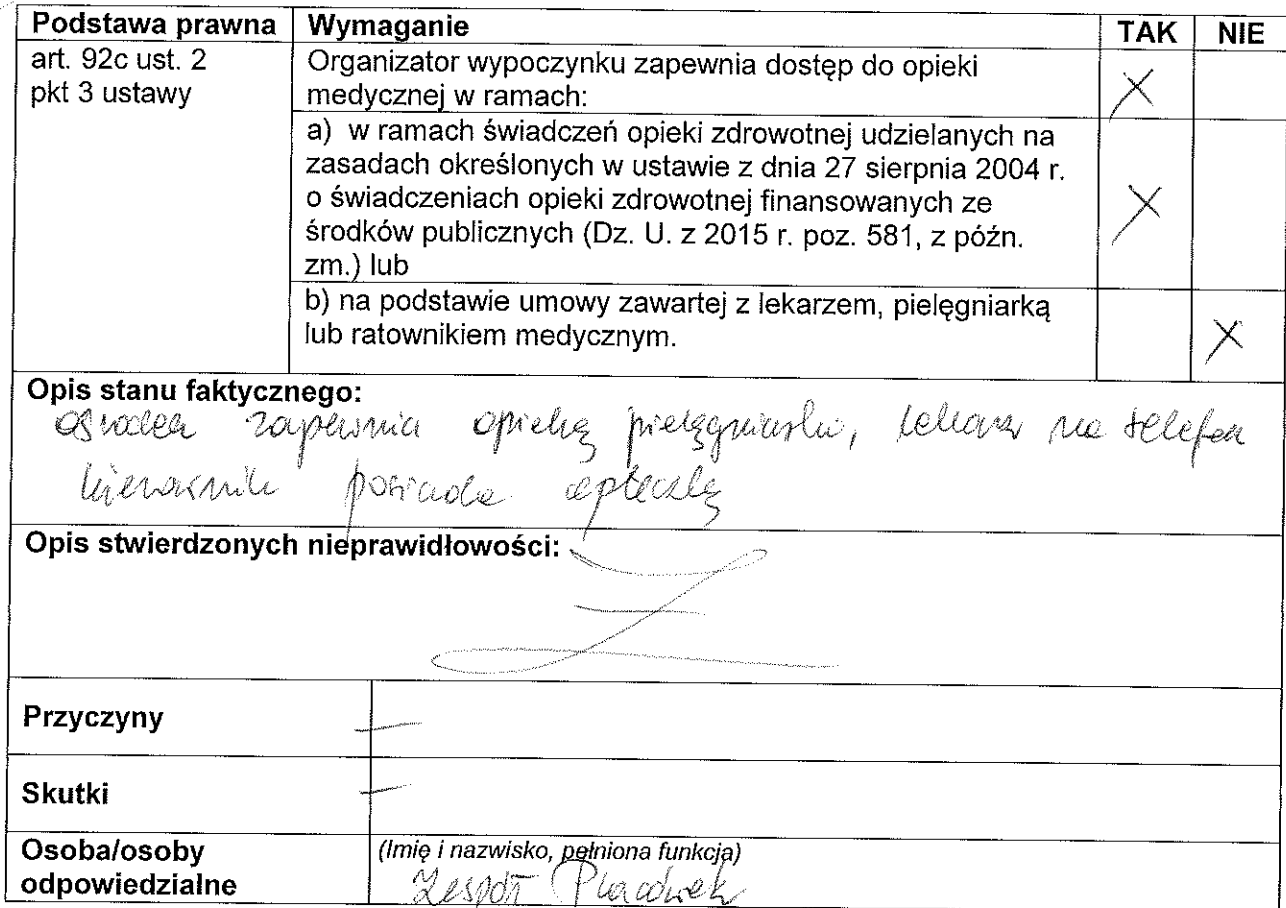 Podstawa prawna Wymaganie TAK NIE
art. 92c ust. 2
pkt 3 ustawy
Organizator wypoczynku zapewnia dostęp do opieki
medycznej w ramach: X
a) w ramach świadczeń opieki zdrowotnej udzielanych na
zasadach określonych w ustawie z dnia 27 sierpnia 2004 r.
o świadczeniach opieki zdrowotnej finansowanych ze
środków publicznych (Dz. U. z 2015 r. poz. 581, z późn.
zm.) lub X
b) na podstawie umowy zawartej z lekarzem, pielęgniarką
lub ratownikiem medycznym. X
Opis stanu faktycznego:
ośrodek zapewnia opiekę pielęgniarki, lekarz na telefon
kierownik posiada apteczkę
Opis stwierdzonych nieprawidłowości:
Przyczyny –
Skutki –
Osoba/osoby
odpowiedzialne
(Imię i nazwisko, pełniona funkcja)
Zespół Placówek